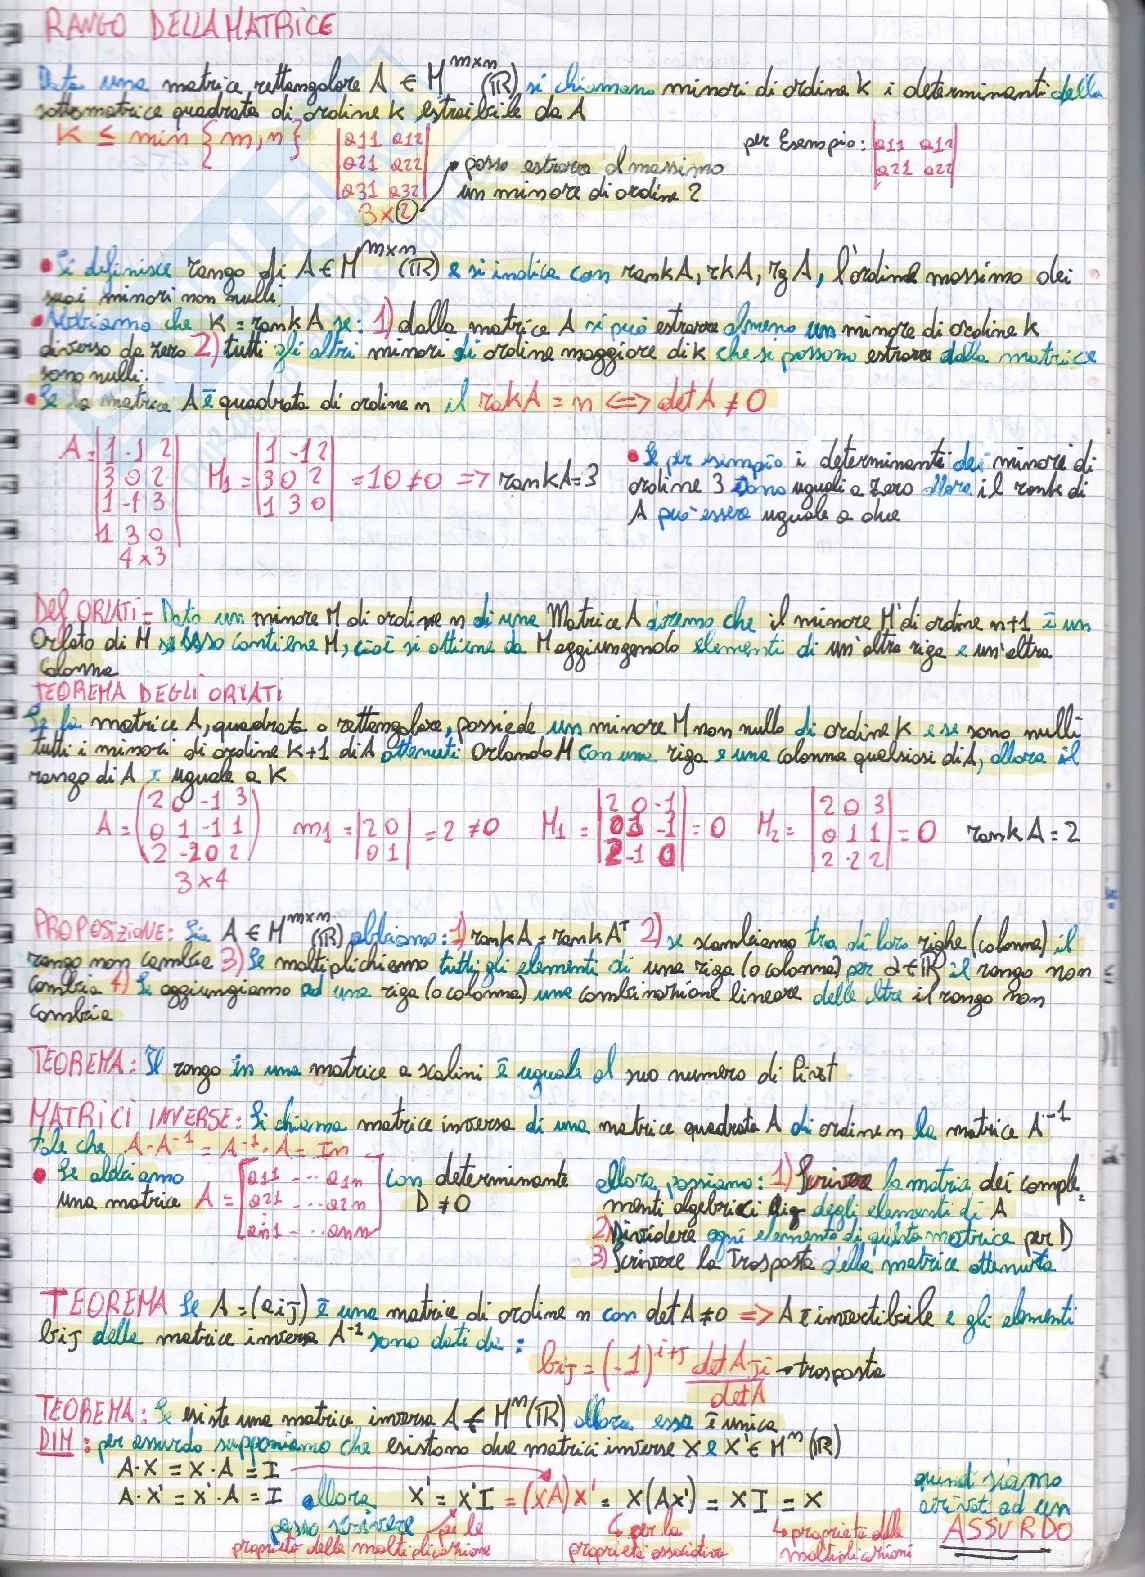 RANGO DELLA MATRICE
Data una matrice rettangolare A ∈ M^{m×n}(ℝ) si chiamano minori di ordine k i determinanti della
sottomatrice quadrata di ordine k estraibile da A
K ≤ min {m,n} |a11 a12| per Esempio: |a11 a12|
|a21 a22| • posso estrarre al massimo |a21 a22|
|a31 a32| un minore di ordine 2
3×2
• Si definisce rango di A ∈ M^{m×n}(ℝ) e si indica con rank A, rk A, rg A, l'ordine massimo dei
suoi minori non nulli.
• Abbiamo che K = rank A se: 1) dalla matrice A si può estrarre almeno un minore di ordine K
diverso da zero 2) tutti gli altri minori di ordine maggiore di k che si possono estrarre dalla matrice
sono nulli.
• Se la matrice A è quadrata di ordine n il rank A = n <=> det A ≠ 0
A = |1 -1 2| M1 = |1 -1 2|
|3 0 2| |3 0 2| = 10 ≠ 0 => rank A = 3
|1 -1 3| |1 3 0|
|1 3 0|
4×3
• Se per esempio i determinanti dei minori di
ordine 3 sono uguali a zero allora il rank di
A può essere uguale a due
Def ORLATI = Dato un minore M di ordine n di una Matrice A diremo che il minore M' di ordine n+1 è un
Orlato di M se esso contiene M, cioè si ottiene da M aggiungendo elementi di un'altra riga e un'altra
colonna
TEOREMA DEGLI ORLATI
Se la matrice A, quadrata o rettangolare, possiede un minore M non nullo di ordine k e se sono nulli
tutti i minori di ordine k+1 di A ottenuti Orlando M con una riga e una colonna qualsiasi di A, allora il
rango di A è uguale a K
A = (2 0 -1 3) m1 = |2 0| = 2 ≠ 0 M1 = |2 0 -1| = 0 M2 = |2 0 3| = 0 rank A = 2
(0 1 -1 1) |0 1| |0 1 -1| |0 1 1|
|2 -1 0| |2 -2 2|
3×4
PROPOSIZIONE: Sia A ∈ M^{m×n}(ℝ) abbiamo: 1) rank A = rank A^T 2) se scambiamo tra di loro righe (colonna) il
rango non cambia 3) Se moltiplichiamo tutti gli elementi di una riga (o colonna) per α ∈ ℝ il rango non
cambia 4) Se aggiungiamo ad una riga (o colonna) una combinazione lineare delle altre il rango non
cambia
TEOREMA: Il rango in una matrice a scalini è uguale al suo numero di Pivot
MATRICI INVERSE: Si chiama matrice inversa di una matrice quadrata A di ordine n la matrice A^{-1}
tale che A·A^{-1} = A^{-1}·A = In
• Se abbiamo [a11 --- a1n] con determinante allora possiamo: 1) Scrivere la matrice dei comple-
una matrice A = [a21 --- a2n] D ≠ 0 menti algebrici Aij degli elementi di A
[an1 --- ann] 2) Dividere ogni elemento di questa matrice per D
3) Scrivere la Trasposta della matrice ottenuta
TEOREMA Se A = (aij) è una matrice di ordine n con det A ≠ 0 => A è invertibile e gli elementi
bij della matrice inversa A^{-1} sono dati da:
bij = (-1)^{i+j} det Aji / det A → trasposta
TEOREMA: Se esiste una matrice inversa A ∈ M^n(ℝ) allora essa è unica
DIM: per assurdo supponiamo che esistono due matrici inverse X e X' ∈ M^n(ℝ)
A·X = X·A = I
A·X' = X'·A = I allora X' = X'I = (XA)X' = X(AX') = XI = X
quindi siamo
arrivati ad un
ASSURDO
posso scrivere
proprietà della moltiplicazione
per la
proprietà associativa
proprietà della
moltiplicazioni